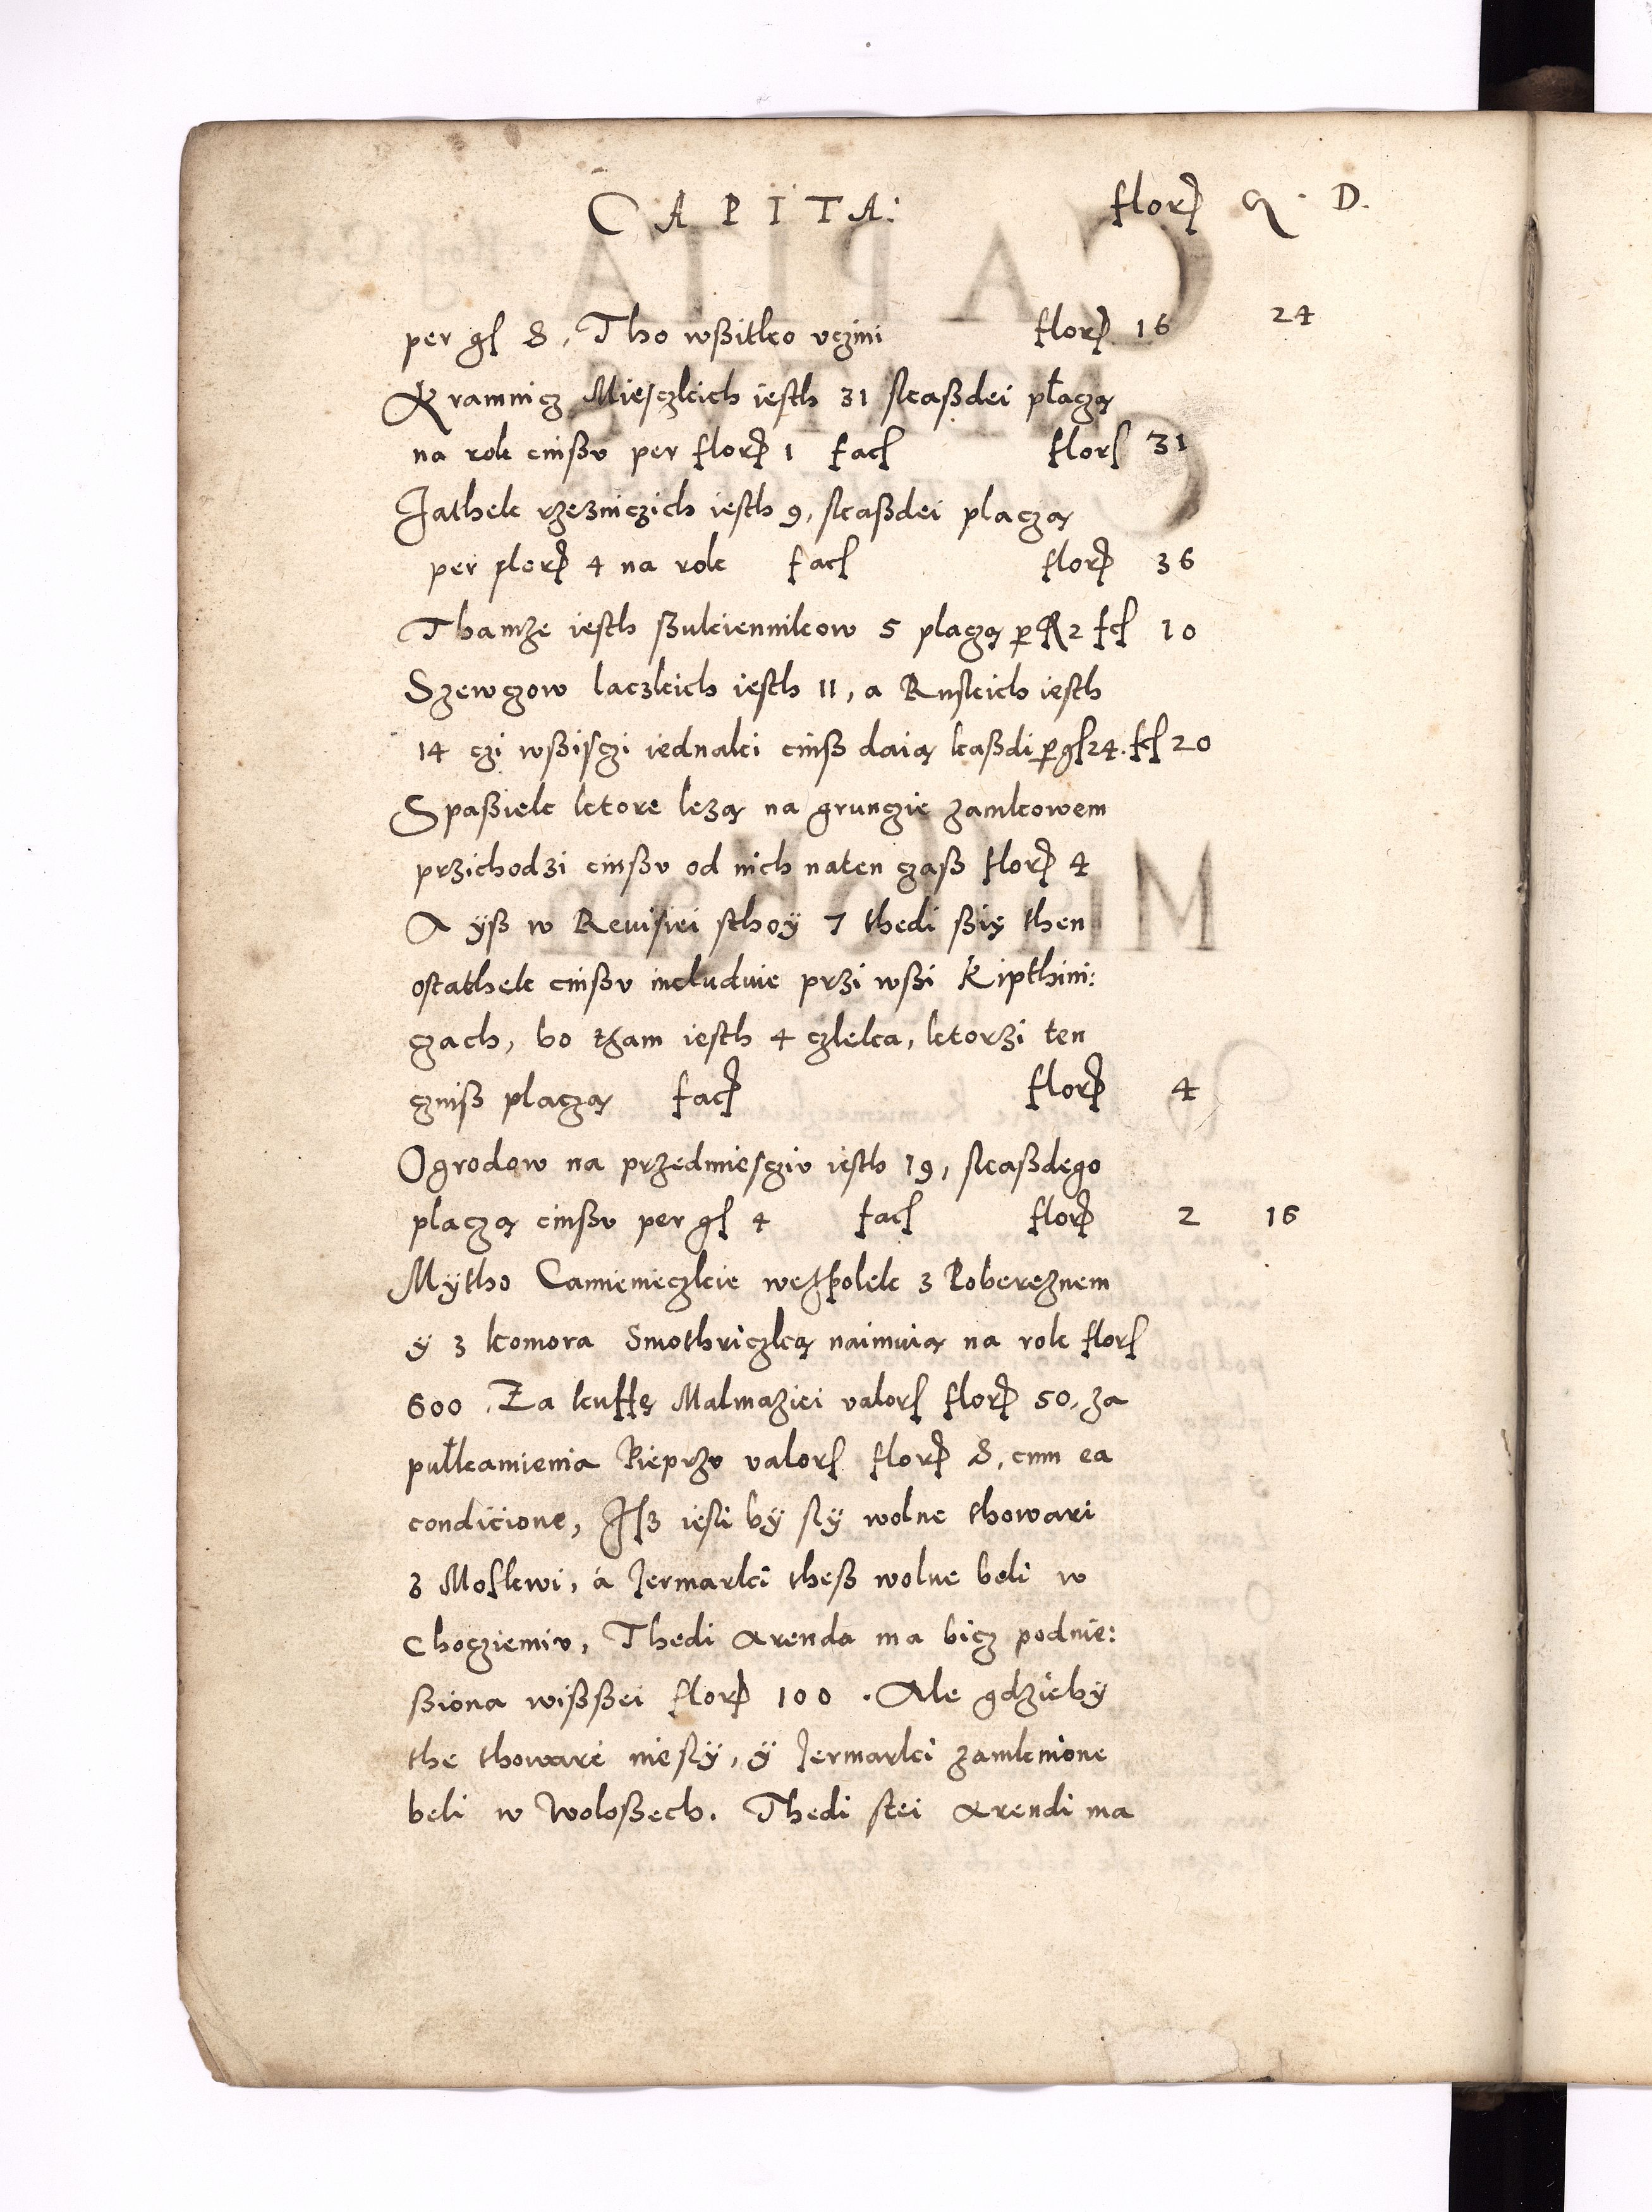 CAPITA: flor G. D.
per gſ 8, Tho wßitko vczini flor 16 24
Kramnicz Mieſczkich ieſth 31 ſkaßdei płaczą
na rok cinßv per flor 1 facſ florſ 31
Jathek rzezniczich ieſth 9, ſkaßdei placzą
per flor 4 na rok facſ flor 36
Thamże ieſth ßukiennikow 5 placzą p 2 fcſ 10
Szewczow laczkich ieſth 11, a Ruſkich ieſth
14 czi wßiſczi iednaki cinß daią kaßdi p gſ 24. fcſ 20
Spaßiek ktore lezą na grunczie zamkowem
przichodzi cinßv od nich naten czaß flor 4
A yß w Reuiſiei ſthoÿ 7 thedi ßię then
oſtathek cinßv includuie przi wßi Kipthini:
czach, bo tham ieſth 4 człeka, ktorzi ten
czinß placzą fac flor 4
Ogrodow na przedmieſcziv ieſth 19, ſkaßdego
placzą cinßv per gſ 4 facſ flor 2 16
Mÿtho Camienieczkie weſpolek z Pobereznem
ÿ z komora Smothriczką naimuią na rok florſ
600. Za kuffę Malmaziei valorſ flor 50, za
pułkamienia Pieprzv valorſ flor 8, cum ea
condicione, Jſz ieſli bÿ ſlÿ wolne thowari
z Moſkwi, á Jermarki theß wolne beli w
Choczimiv, Thedi Arenda ma bicz podnie:
ßiona wißßei flor 100. Ale gdziebÿ
the thowari nieſlÿ, ÿ Jermarki zamknione
beli w Woloßech. Thedi ſtei Arendi ma